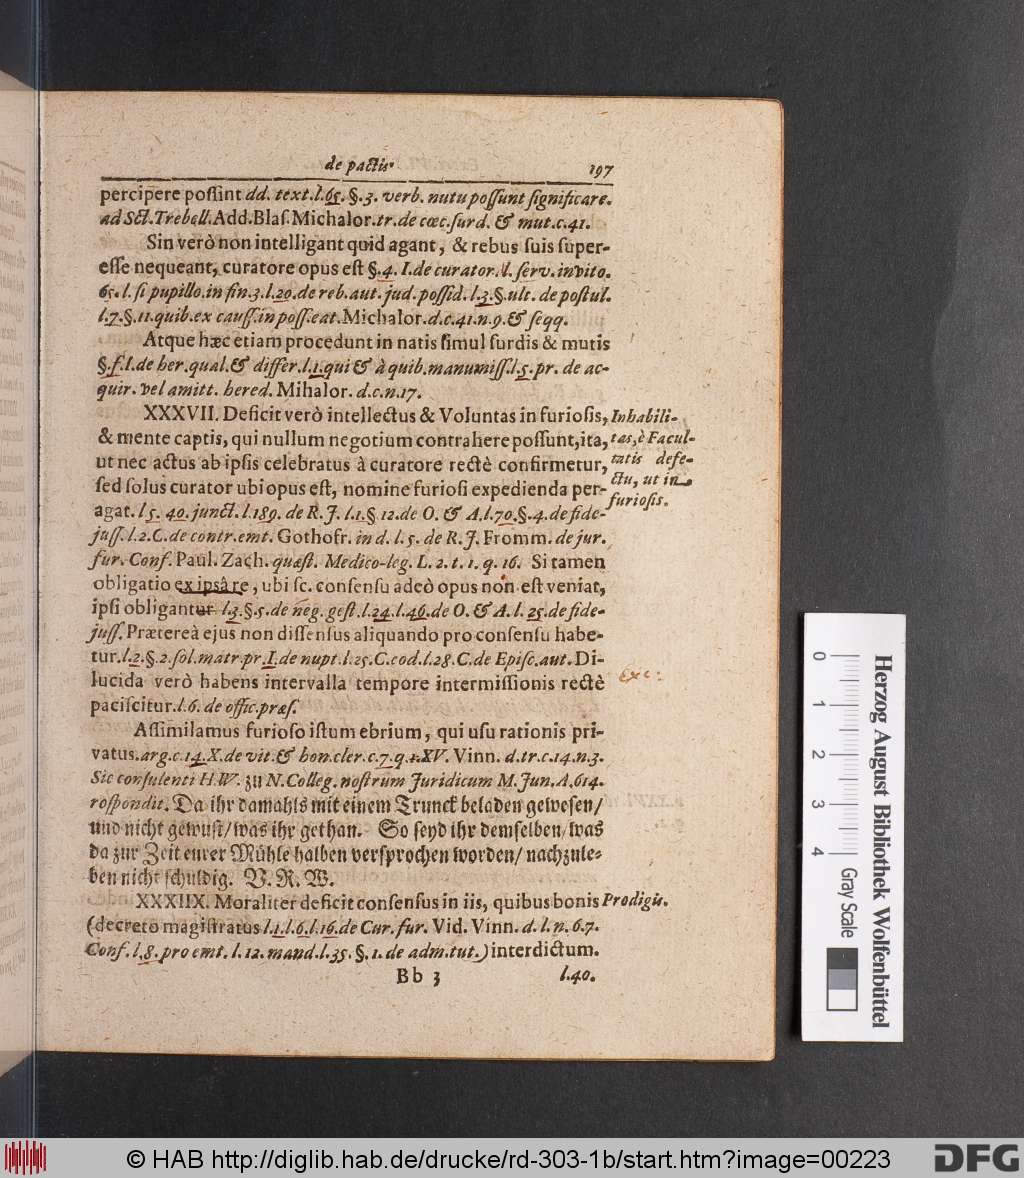 de pactis. 197
percipere possint dd. text. l. 65. §. 3. verb. nutu possunt significare.
ad Sct. Trebell. Add. Blas. Michalor. tr. de cœc. surd. & mut. c. 41.
Sin verò non intelligant quid agant, & rebus suis super-
esse nequeant, curatore opus est §. 4. I. de curator. l. serv. invito.
65. l. si pupillo. in fin. 3. l. 20. de reb. aut. jud. possid. l. 3. §. ult. de postul.
l. 7. §. 11. quib. ex causs. in poss. eat. Michalor. d. c. 41. n. 9. & seqq.
Atque hæc etiam procedunt in natis simul surdis & mutis
§. f. I. de her. qual. & differ. l. 1. qui & à quib. manumiss. l. 5. pr. de ac-
quir. vel amitt. hered. Mihalor. d. c. n. 17.
XXXVII. Deficit verò intellectus & Voluntas in furiosis,
& mente captis, qui nullum negotium contrahere possunt, ita,
ut nec actus ab ipsis celebratus à curatore rectè confirmetur,
sed solus curator ubi opus est, nomine furiosi expedienda per-
agat. l. 5. 40. junct. l. 189. de R. J. l. 1. §. 12. de O. & A. l. 70. §. 4. de fide-
juss. l. 2. C. de contr. emt. Gothofr. in d. l. 5. de R. J. Fromm. de jur.
fur. Conf. Paul. Zach. quæst. Medico-leg. L. 2. t. 1. q. 16. Si tamen
obligatio ex ipsâ re, ubi sc. consensu adeò opus non est veniat,
ipsi obligantur l. 3. §. 5. de neg. gest. l. 24. l. 46. de O. & A. l. 25. de fide-
juss. Prætereà ejus non dissensus aliquando pro consensu habe-
tur. l. 2. §. 2. sol. matr. pr. I. de nupt. l. 25. C. eod. l. 28. C. de Episc. aut. Di-
lucida verò habens intervalla tempore intermissionis rectè
paciscitur. l. 6. de offic. præs.
Assimilamus furioso istum ebrium, qui usu rationis pri-
vatus. arg. c. 14. X. de vit. & hon. cler. c. 7. q. 1. XV. Vinn. d. tr. c. 14. n. 3.
Sic consulenti H. W. zu N. Colleg. nostrum Juridicum M. Jun. A. 614.
respondit. Da ihr damahls mit einem Trunck beladen gewesen/
und nicht gewust/ was ihr gethan. So seyd ihr demselben/ was
da zur Zeit eurer Mühle halben versprochen worden/ nachzule-
ben nicht schuldig. V. R. W.
XXXIIX. Moraliter deficit consensus in iis, quibus bonis
(decreto magistratus l. 1. l. 6. l. 16. de Cur. fur. Vid. Vinn. d. l. n. 6. 7.
Conf. l. 8. pro emt. l. 12. mand. l. 35. §. 1. de adm. tut.) interdictum.
Bb 3 l. 40.
Inhabili-
tas, è Facul-
tatis defe-
ctu, ut in
furiosis.
Exc:
Prodigis.
0 1 2 3 4
Gray Scale
Herzog August Bibliothek Wolfenbüttel
© HAB http://diglib.hab.de/drucke/rd-303-1b/start.htm?image=00223
DFG